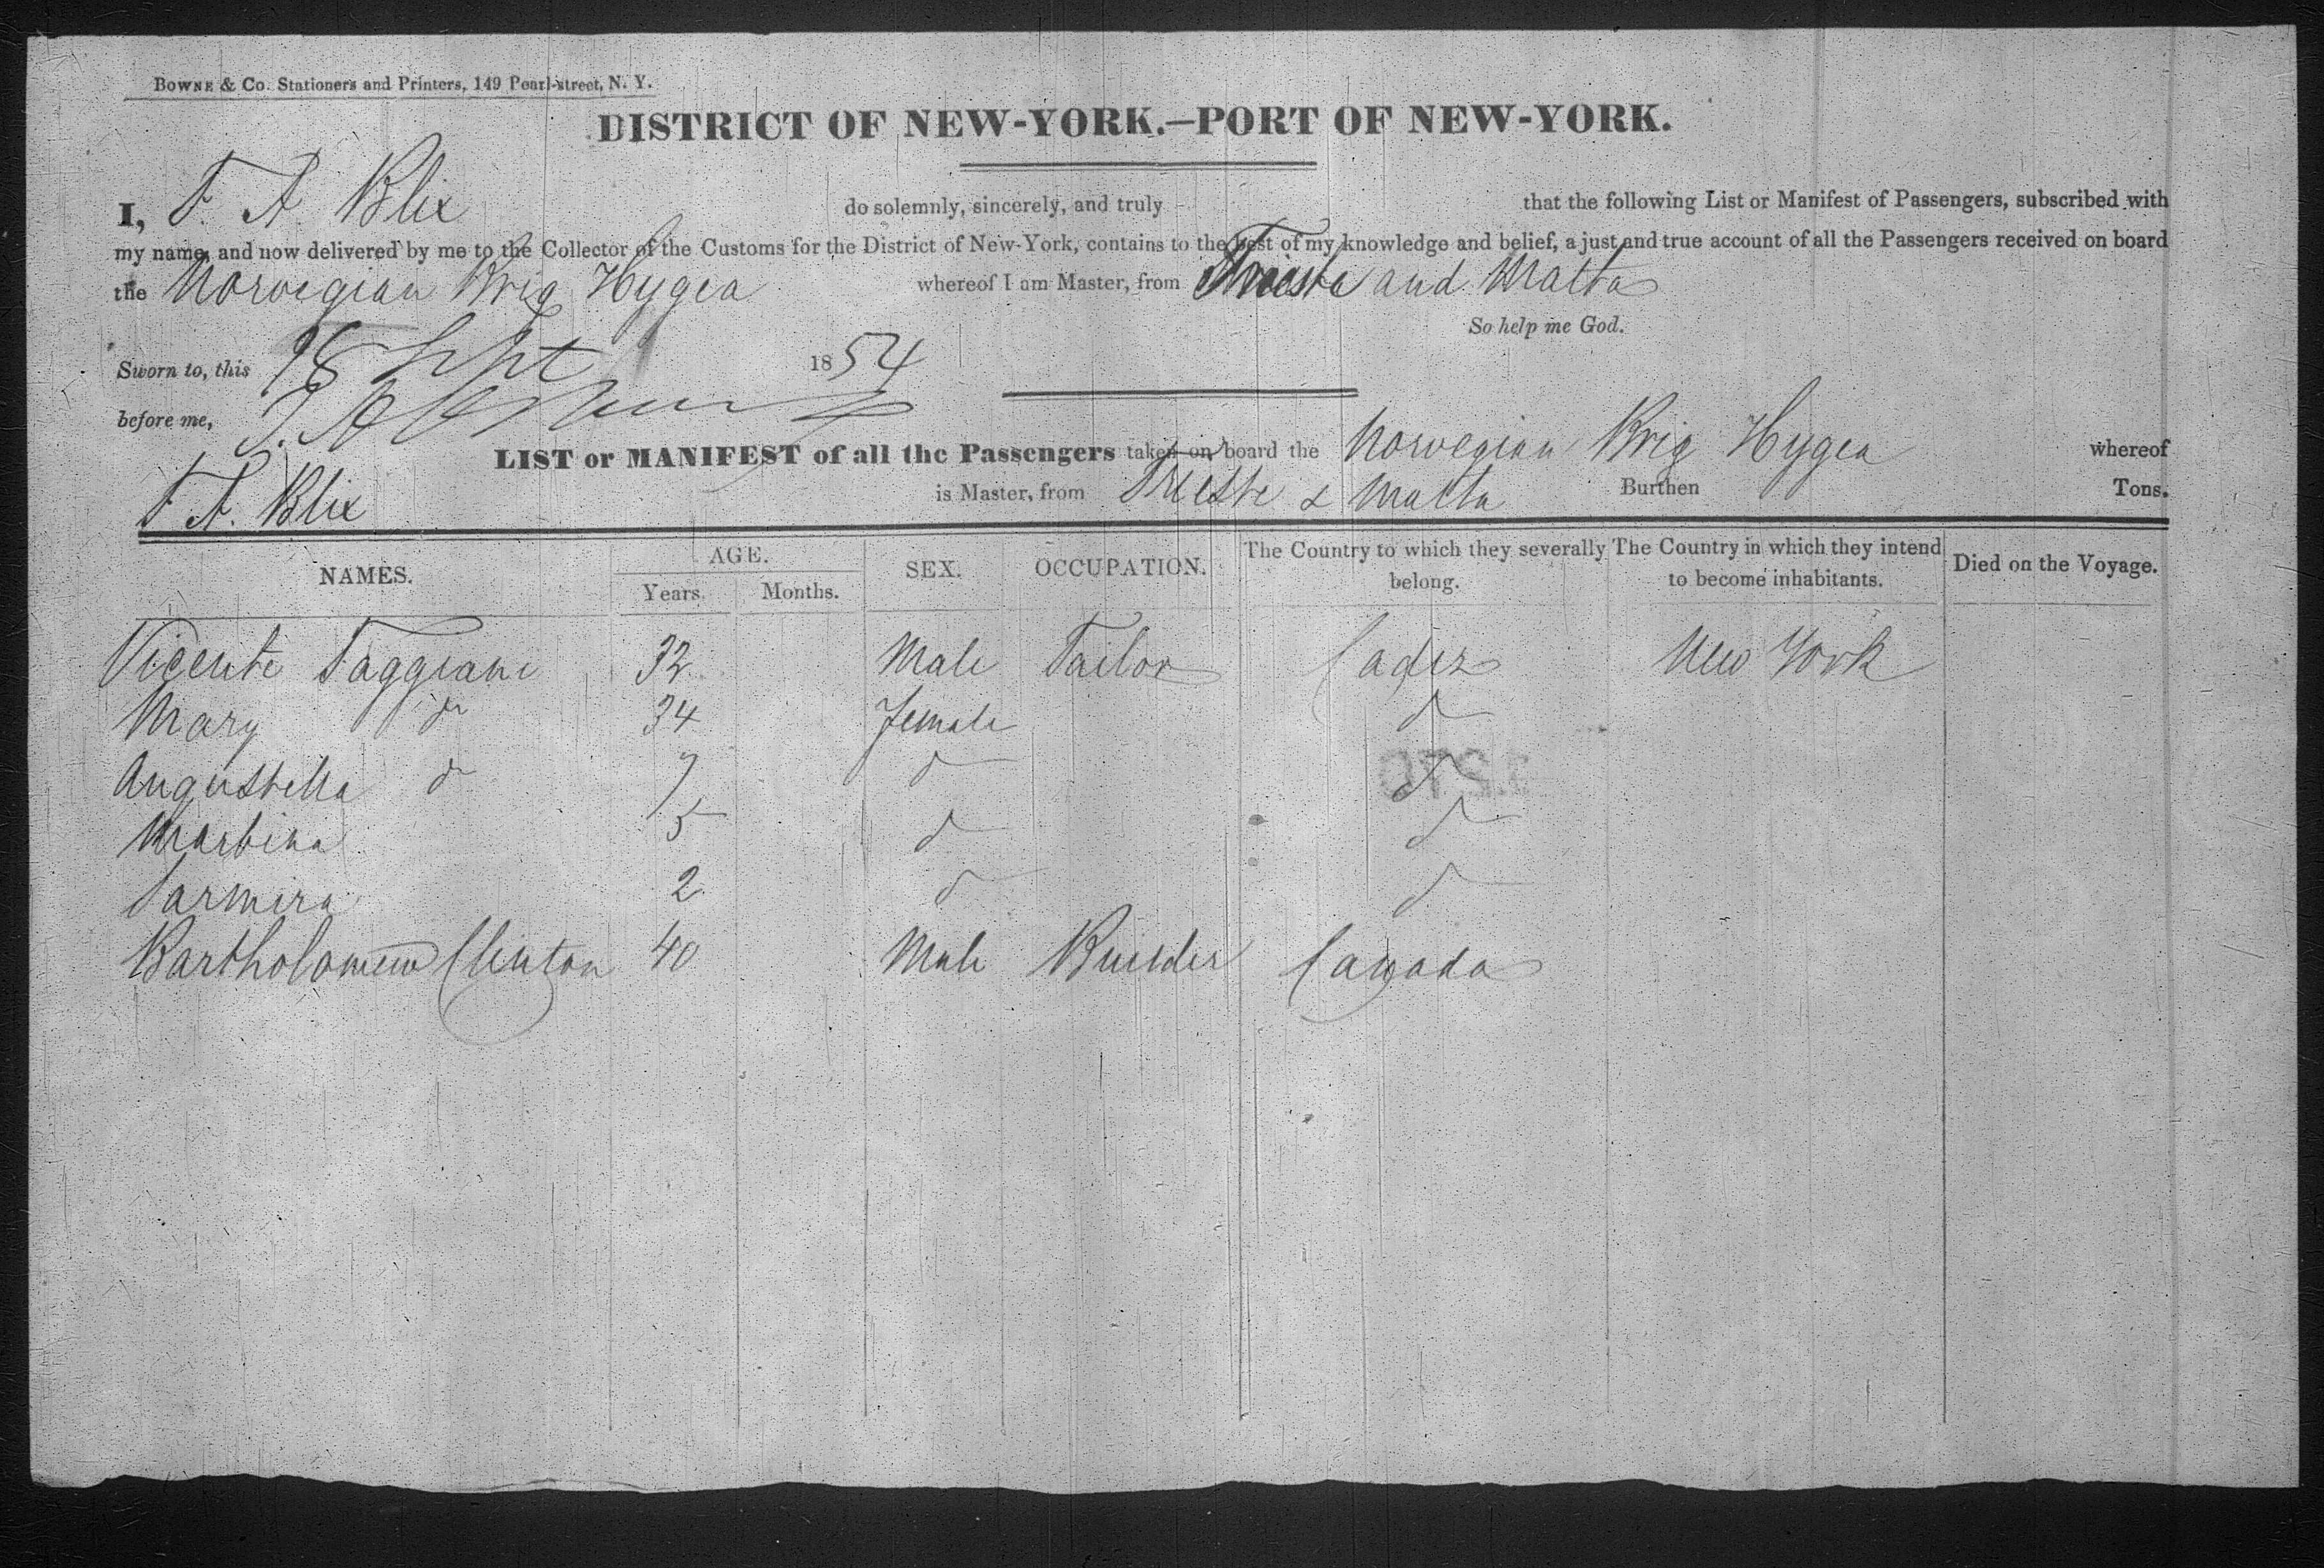 BOWNE & CO. Stationers and Printers, 149 Pearl-street, N. Y.
DISTRICT OF NEW-YORK.—PORT OF NEW-YORK.
I, F. A. Blix do solemnly, sincerely, and truly that the following List or Manifest of Passengers, subscribed with
my name, and now delivered by me to the Collector of the Customs for the District of New-York, contains to the best of my knowledge and belief, a just and true account of all the Passengers received on board
the Norwegian Brig Hygea whereof I am Master, from Trieste and Malta
So help me God.
Sworn to, this 18 Sept 1854
before me,
LIST or MANIFEST of all the Passengers taken on board the Norwegian Brig Hygea whereof
F. A. Blix is Master, from Trieste & Malta Burthen Tons.
NAMES. AGE. Years. Months. SEX. OCCUPATION. The Country to which they severally belong. The Country in which they intend to become inhabitants. Died on the Voyage.
Vicente Taggiani 32 Male Tailor Cadiz New York
Mary do 34 Female do
Angustella do 7 do do
Marbina 5 do do
2 do do
Bartholomew Clinton 40 Male Builder Canada